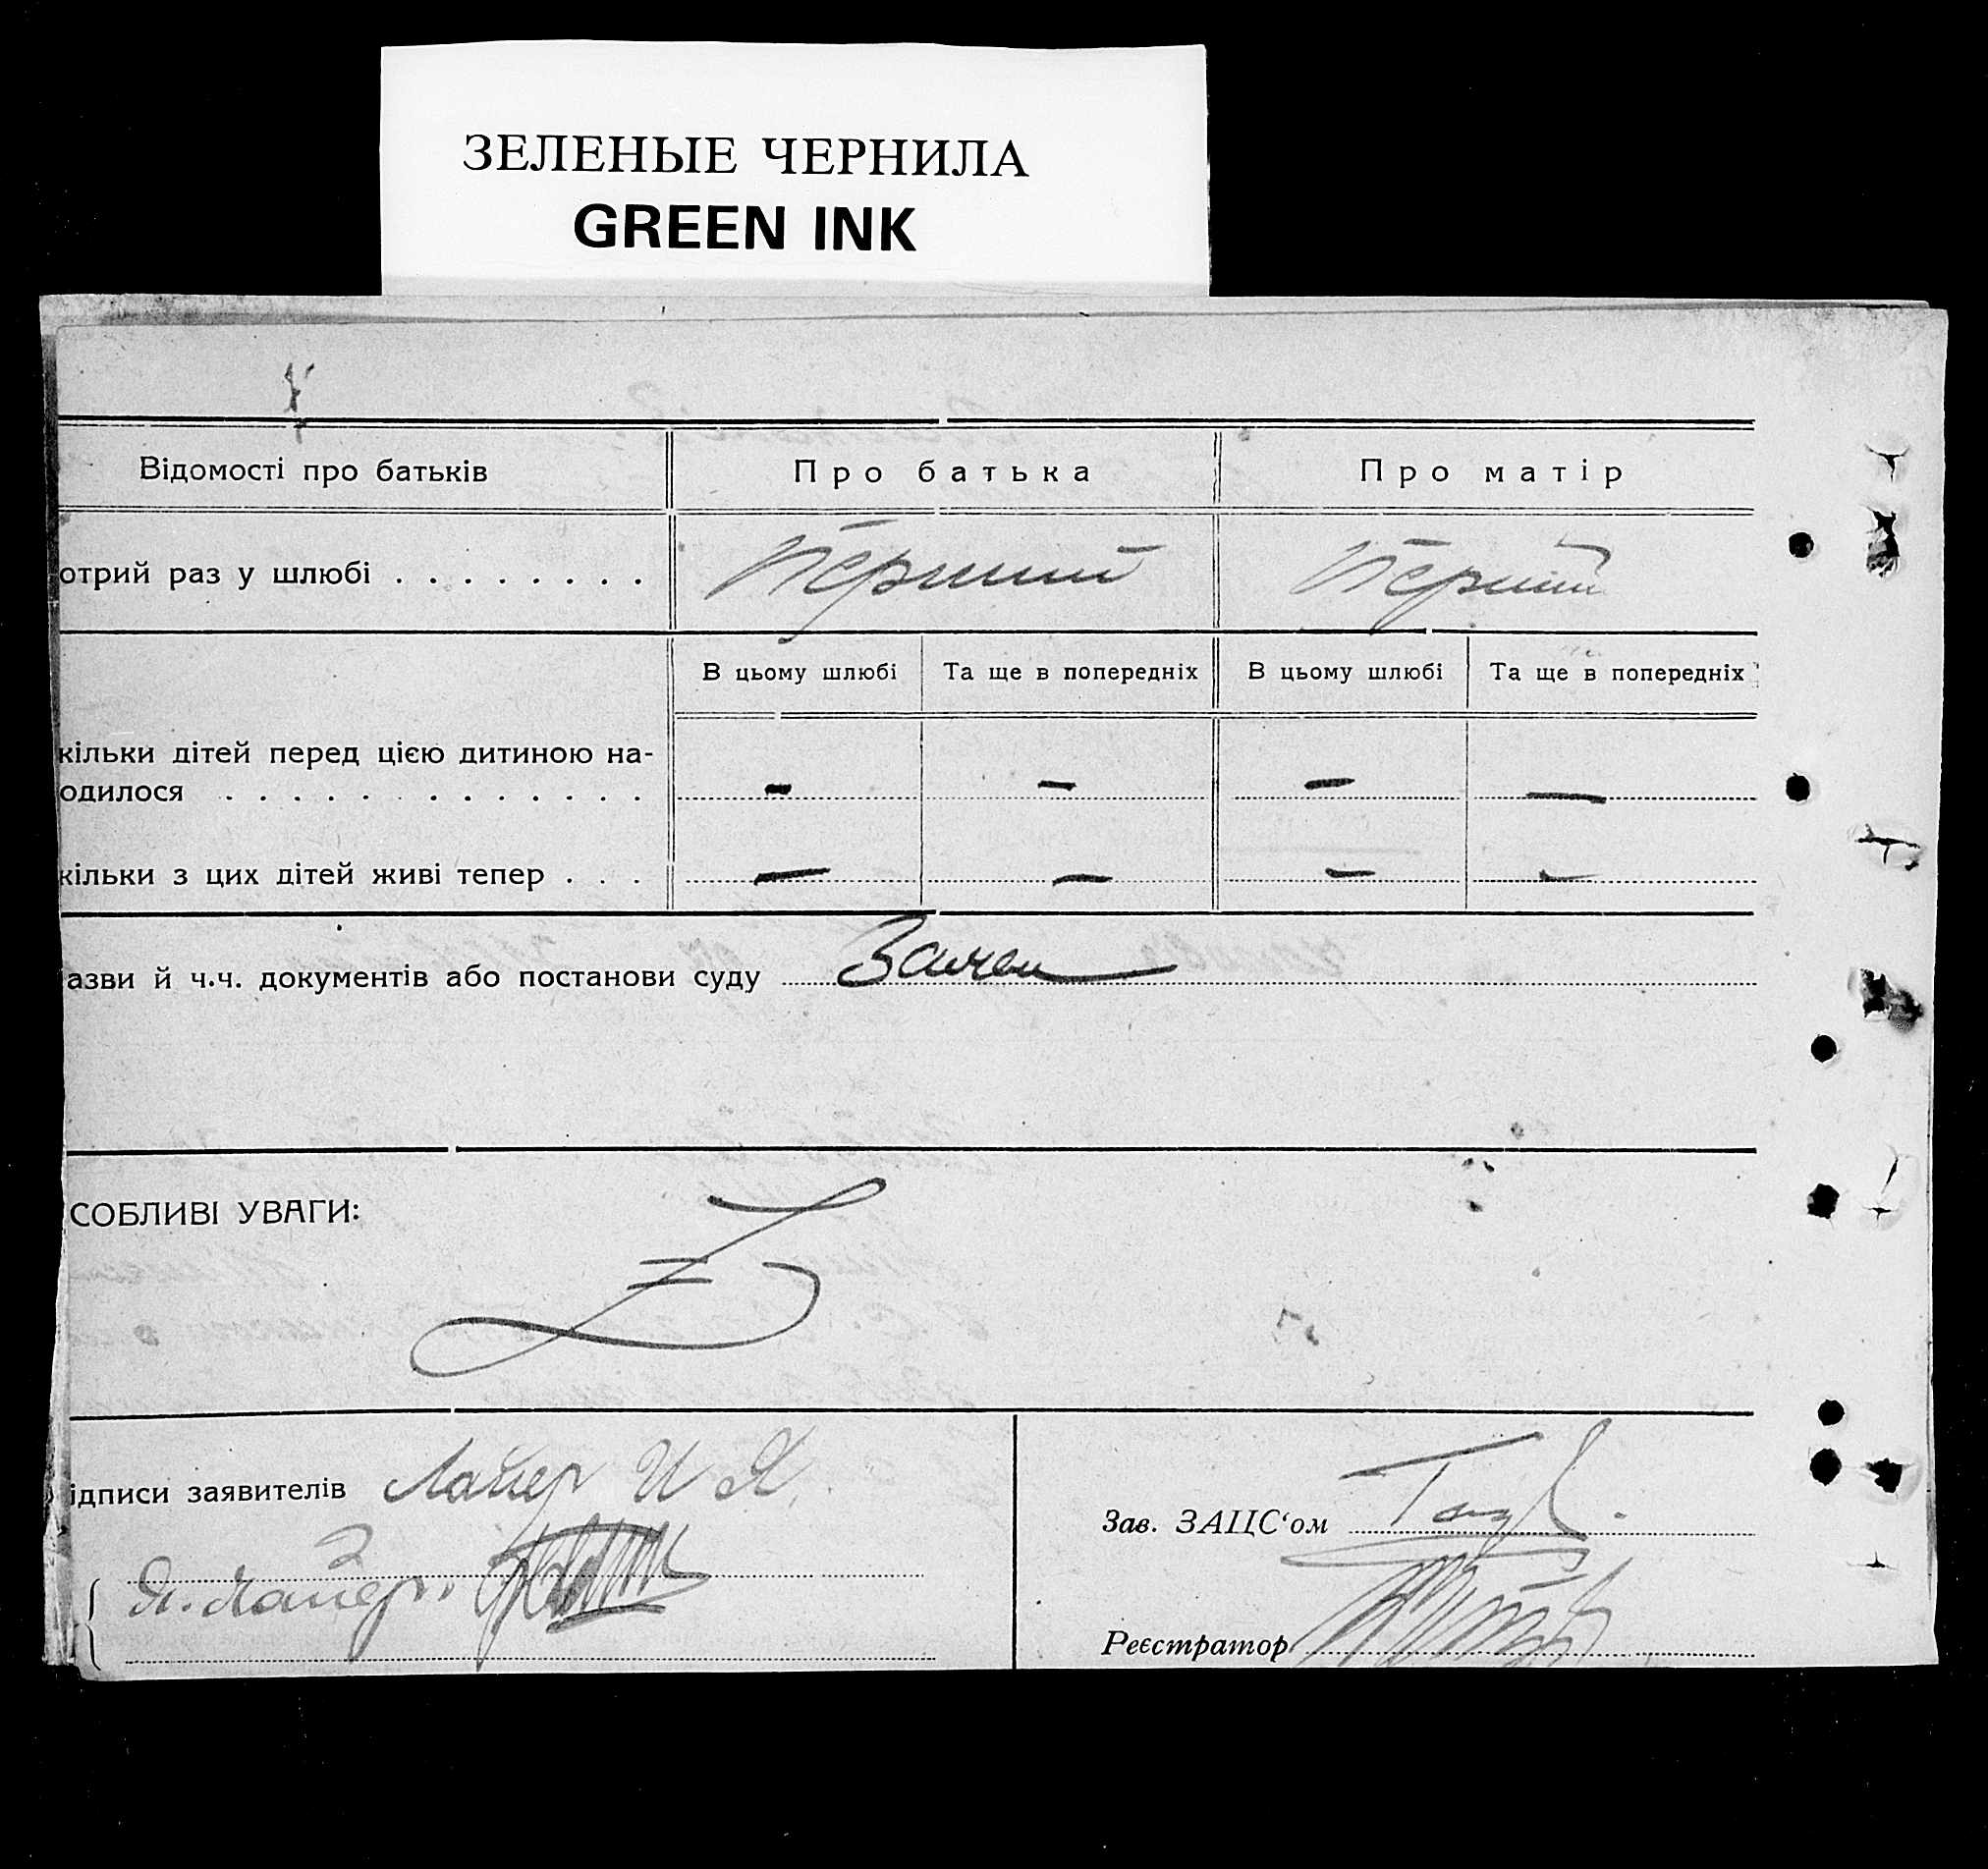 ЗЕЛЕНЫЕ ЧЕРНИЛА
GREEN INK
Відомості про батьків Про батька Про матір
отрий раз у шлюбі . . . . . . . . Перший Перший
В цьому шлюбі Та ще в попередніх В цьому шлюбі Та ще в попередніх
кільки дітей перед цією дитиною на-
одилося . . . . . . . . . . . . . — — — —
кільки з цих дітей живі тепер . . . — — — —
азви й ч.ч. документів або постанови суду
СОБЛИВІ УВАГИ:
ідписи заявителів Лайер И Я.
Зав. ЗАЦС‘ом
Я. Лайер.
Реєстратор